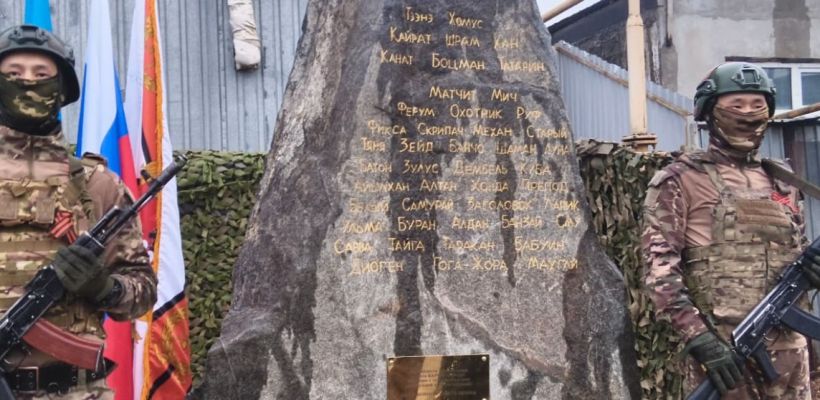 Тэнэ Хомус
Кайрат Шрам Хан
Канат Боцман Татарин
Матчит Мич
Ферум Охотник Руф
Фикса Скрипач Механ Старый
Тяня Зейд Банчо Шаман Дуна
Батон Зулус Дембель Куба
Алтан Хонда Препод
Белый Самурай Заголовок Ларик
Ильма Буран Алдан Банзай
Савва Тайга Таракан Бабуин
Диоген Гога-Жора Маугли